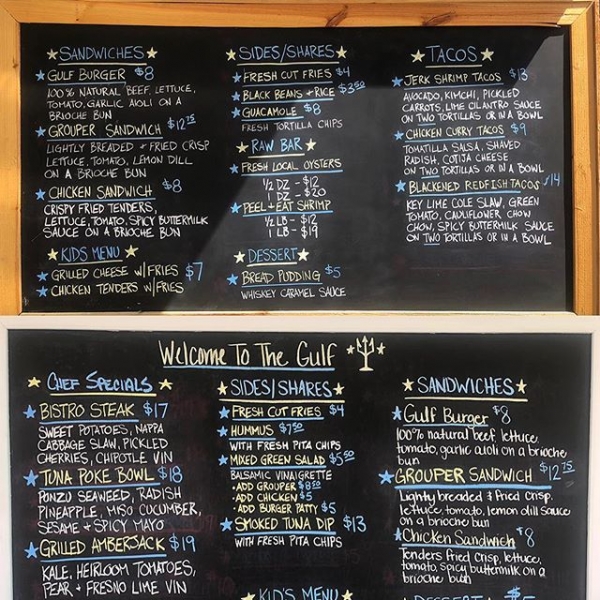 SANDWICHES
GULF BURGER $8
100% NATURAL BEEF, LETTUCE,
TOMATO, GARLIC AIOLI ON A
BRIOCHE BUN
GROUPER SANDWICH $12.75
LIGHTLY BREADED + FRIED CRISP
LETTUCE, TOMATO, LEMON DILL
ON A BRIOCHE BUN
CHICKEN SANDWICH $8
CRISPY FRIED TENDERS,
LETTUCE, TOMATO, SPICY BUTTERMILK
SAUCE ON A BRIOCHE BUN
KIDS MENU
GRILLED CHEESE W/FRIES $7
CHICKEN TENDERS W/FRIES
SIDES/SHARES
FRESH CUT FRIES $4
BLACK BEANS + RICE $3.50
GUACAMOLE $8
FRESH TORTILLA CHIPS
RAW BAR
FRESH LOCAL OYSTERS
1/2 DZ - $12
1 DZ - $20
PEEL + EAT SHRIMP
1/2 LB - $12
1 LB - $19
DESSERT
BREAD PUDDING $5
WHISKEY CARAMEL SAUCE
TACOS
JERK SHRIMP TACOS $13
AVOCADO, KIMCHI, PICKLED
CARROTS, LIME CILANTRO SAUCE
ON TWO TORTILLAS OR IN A BOWL
CHICKEN CURRY TACOS $9
TOMATILLA SALSA, SHAVED
RADISH, COTIJA CHEESE
ON TWO TORTILLAS OR IN A BOWL
BLACKENED REDFISH TACOS $14
KEY LIME COLE SLAW, GREEN
TOMATO, CAULIFLOWER CHOW
CHOW, SPICY BUTTERMILK SAUCE
ON TWO TORTILLAS OR IN A BOWL
Welcome To The Gulf
CHEF SPECIALS
BISTRO STEAK $17
SWEET POTATOES, NAPPA
CABBAGE SLAW, PICKLED
CHERRIES, CHIPOTLE VIN
TUNA POKE BOWL $18
PONZU SEAWEED, RADISH
PINEAPPLE, MISO CUCUMBER,
SESAME + SPICY MAYO
GRILLED AMBERJACK $19
KALE, HEIRLOOM TOMATOES,
PEAR + FRESNO LIME VIN
SIDES/SHARES
FRESH CUT FRIES $4
HUMMUS $7.50
WITH FRESH PITA CHIPS
MIXED GREEN SALAD $5.50
BALSAMIC VINAIGRETTE
• ADD GROUPER $8.50
• ADD CHICKEN $5
• ADD BURGER PATTY $5
SMOKED TUNA DIP $13
WITH FRESH PITA CHIPS
KID'S MENU
SANDWICHES
Gulf Burger $8
100% natural beef, lettuce,
tomato, garlic aioli on a brioche
bun
GROUPER SANDWICH $12.75
Lightly breaded & fried crisp,
lettuce, tomato, lemon dill Sauce
on a brioche bun
Chicken Sandwich $8
Tenders fried crisp, lettuce,
tomato, spicy buttermilk on a
brioche bun
DESSERT